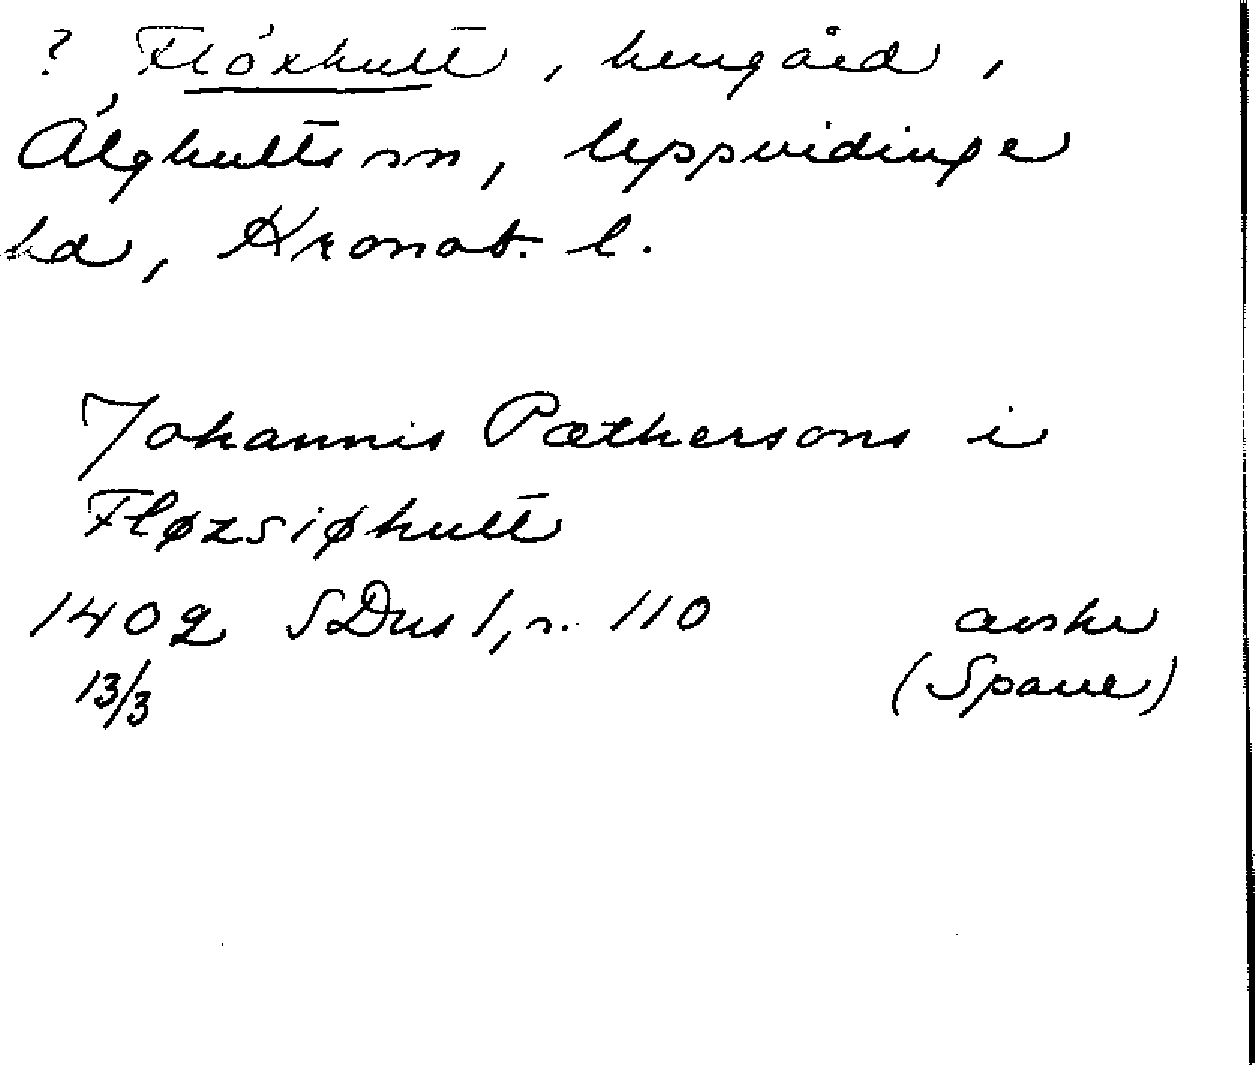 ? Flöxhult, herrgård,
Älghults sn, Uppvidinge
hd, Kronob. l.
Johannis Pæthersons i
Fløzsiøhult
1402 SDns 1, s. 110 avskr
13/3 (Spane)